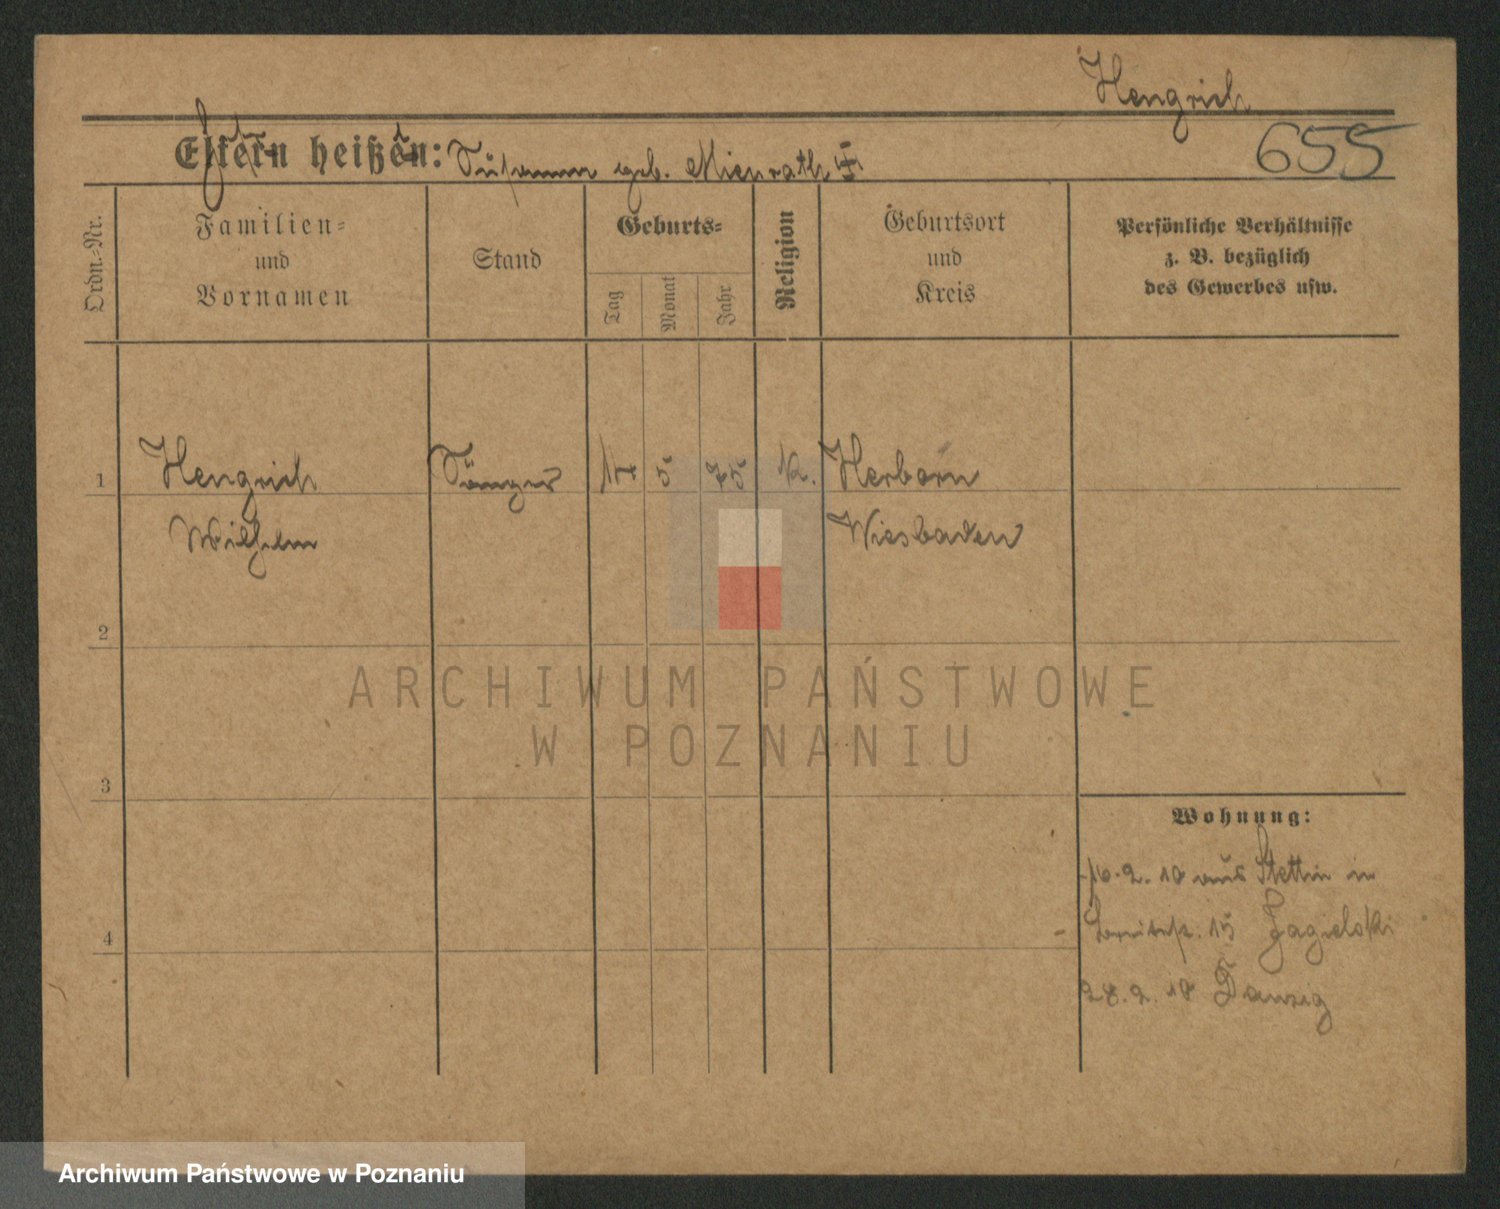 Hengrich
655
Eltern heißen: geb. Mienrath
Ordn.-Nr.
Familien-
und
Vornamen
Stand
Geburts-
Tag
Monat
Jahr
Religion
Geburtsort
und
Kreis
Persönliche Verhältnisse
z. B. bezüglich
des Gewerbes usw.
1 Hengrich Sänger 14 5 75 K. Herborn
Wilhelm Wiesbaden
2
3
4
Wohnung:
16.2.18 aus Stettin in
15 Jagielski
28.2.18 Danzig
ARCHIWUM PAŃSTWOWE
W POZNANIU
Archiwum Państwowe w Poznaniu